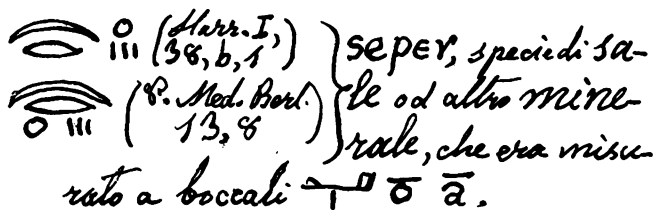 (Harr. I, 38, b, 1)
(P. Med. Berl. 13, 8)
seper, specie di sa-
le od altro mine-
rale, che era misu-
rato a boccali ō ā.